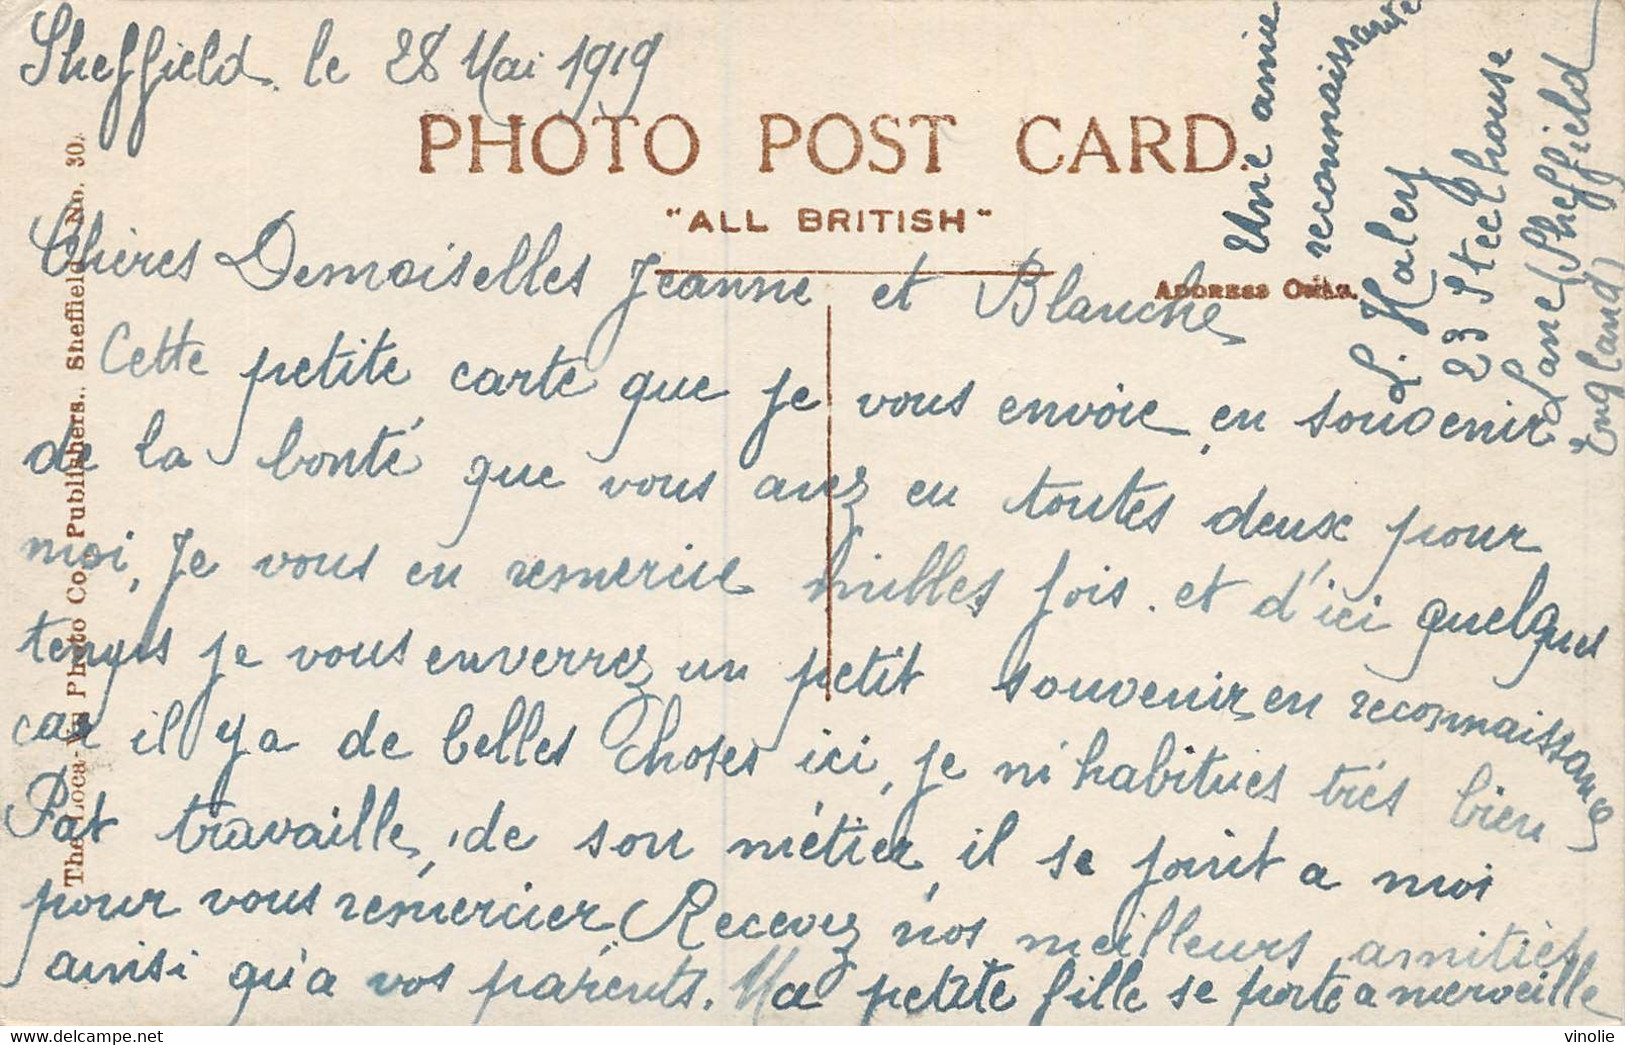 Sheffield. le 28 Mai 1919
PHOTO POST CARD.
"ALL BRITISH"
ADDRESS ONLY.
Chères Demoiselles Jeanne et Blanche
Cette petite carte que je vous envoie en souvenir
de la bonté que vous avez eu toutes deux pour
moi, Je vous en remercie milles fois. et d'ici quelques
temps je vous enverrez un petit souvenir en reconnaissance
car il y a de belles choses ici, je m'habitues très bien
Pat travaille, de son métier, il se joint a moi
pour vous remercier, Recevez nos meilleurs amitiés
ainsi qu'a vos parents. Ma petite fille se porte a merveille
Une amie
reconnaissante
L. Haley
23 Steelhouse
Lane (Sheffield
England)
The Loca Photo Co. Publishers.. Sheffield No. 30.
vinolie